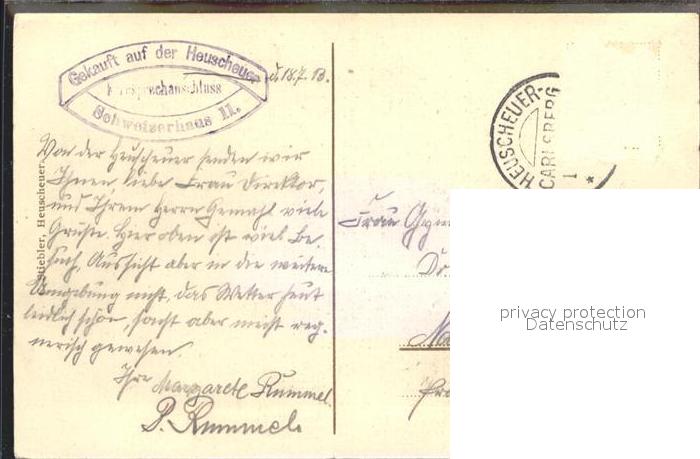 Gekauft auf der Heuscheuer
Fernsprechanschluss
Schweizerhaus 11.
d. 18.7.13.
Von der Heuscheuer senden wir
Ihnen, liebe Frau Direktor,
und Ihrem Herrn Gemahl viele
Grüße. Hier oben ist viel Be-
such, Aussicht aber in die weitere
Umgebung nicht, das Wetter heut
leidlich schön, sonst aber meist reg-
nerisch gewesen.
Ihre Margarete Rummel.
P. Rummel.
Stiebler, Heuscheuer
HEUSCHEUER-
CARLSBERG
1
*
Frau
privacy protection
Datenschutz